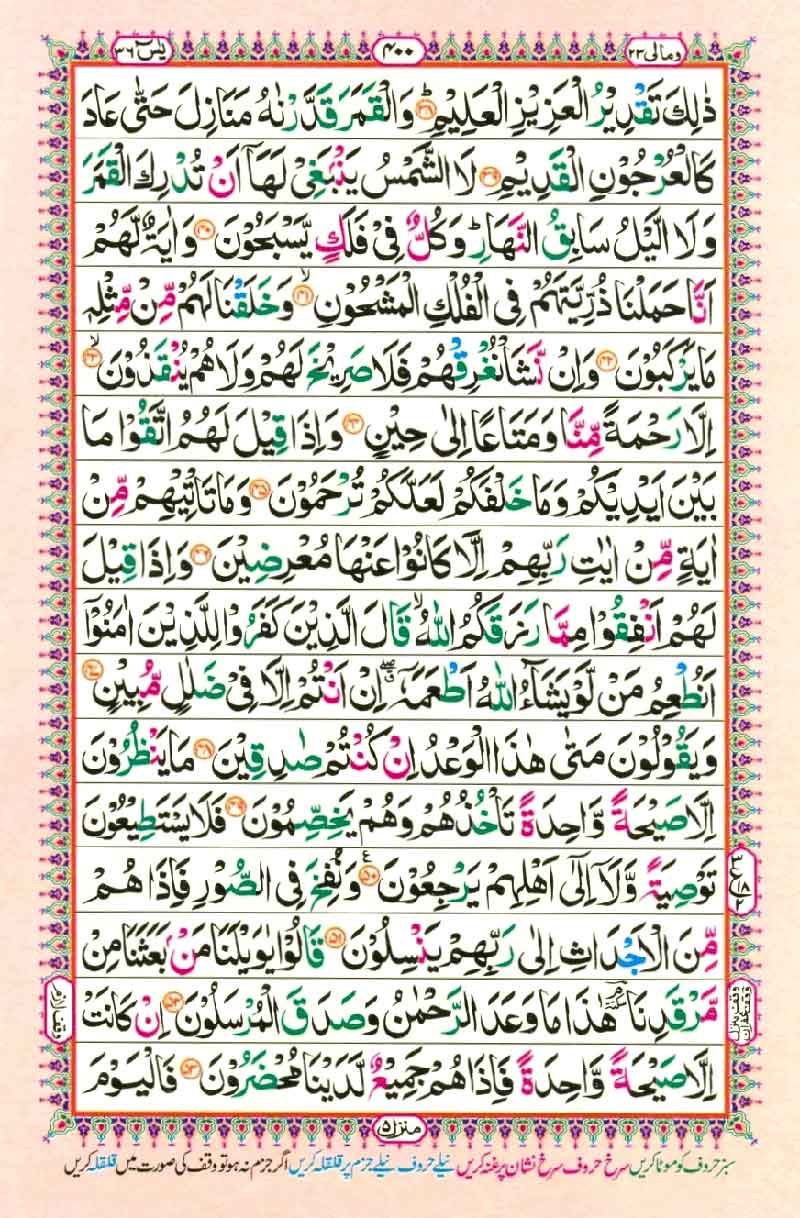 وما لی ۲۳ ۴۰۰ یٰسٓ ۳۶
ذٰلِكَ تَقْدِیْرُ الْعَزِیْزِ الْعَلِیْمِؕ۝۳۸ وَالْقَمَرَ قَدَّرْنٰهُ مَنَازِلَ حَتّٰی عَادَ
كَالْعُرْجُوْنِ الْقَدِیْمِ۝۳۹ لَا الشَّمْسُ یَنْۢبَغِیْ لَهَاۤ اَنْ تُدْرِكَ الْقَمَرَ
وَلَا الَّیْلُ سَابِقُ النَّهَارِؕ وَكُلٌّ فِیْ فَلَكٍ یَّسْبَحُوْنَ۝۴۰ وَاٰیَةٌ لَّهُمْ
اَنَّا حَمَلْنَا ذُرِّیَّتَهُمْ فِی الْفُلْكِ الْمَشْحُوْنِۙ۝۴۱ وَخَلَقْنَا لَهُمْ مِّنْ مِّثْلِهٖ
مَا یَرْكَبُوْنَ۝۴۲ وَاِنْ نَّشَاْ نُغْرِقْهُمْ فَلَا صَرِیْخَ لَهُمْ وَلَا هُمْ یُنْقَذُوْنَۙ۝۴۳
اِلَّا رَحْمَةً مِّنَّا وَمَتَاعًا اِلٰی حِیْنٍ۝۴۴ وَاِذَا قِیْلَ لَهُمُ اتَّقُوْا مَا
بَیْنَ اَیْدِیْكُمْ وَمَا خَلْفَكُمْ لَعَلَّكُمْ تُرْحَمُوْنَ۝۴۵ وَمَا تَاْتِیْهِمْ مِّنْ
اٰیَةٍ مِّنْ اٰیٰتِ رَبِّهِمْ اِلَّا كَانُوْا عَنْهَا مُعْرِضِیْنَ۝۴۶ وَاِذَا قِیْلَ
لَهُمْ اَنْفِقُوْا مِمَّا رَزَقَكُمُ اللّٰهُۙ قَالَ الَّذِیْنَ كَفَرُوْا لِلَّذِیْنَ اٰمَنُوْۤا
اَنُطْعِمُ مَنْ لَّوْ یَشَآءُ اللّٰهُ اَطْعَمَهٗۤ اِنْ اَنْتُمْ اِلَّا فِیْ ضَلٰلٍ مُّبِیْنٍ۝۴۷
وَیَقُوْلُوْنَ مَتٰی هٰذَا الْوَعْدُ اِنْ كُنْتُمْ صٰدِقِیْنَ۝۴۸ مَا یَنْظُرُوْنَ
اِلَّا صَیْحَةً وَّاحِدَةً تَاْخُذُهُمْ وَهُمْ یَخِصِّمُوْنَ۝۴۹ فَلَا یَسْتَطِیْعُوْنَ
تَوْصِیَةً وَّلَاۤ اِلٰۤی اَهْلِهِمْ یَرْجِعُوْنَ۝۵۰ وَنُفِخَ فِی الصُّوْرِ فَاِذَا هُمْ
مِّنَ الْاَجْدَاثِ اِلٰی رَبِّهِمْ یَنْسِلُوْنَ۝۵۱ قَالُوْا یٰوَیْلَنَا مَنْۢ بَعَثَنَا مِنْ
مَّرْقَدِنَا هٰذَا مَا وَعَدَ الرَّحْمٰنُ وَصَدَقَ الْمُرْسَلُوْنَ۝۵۲ اِنْ كَانَتْ
اِلَّا صَیْحَةً وَّاحِدَةً فَاِذَا هُمْ جَمِیْعٌ لَّدَیْنَا مُحْضَرُوْنَ۝۵۳ فَالْیَوْمَ
وقف لازم
منزل ۵
سبز حروف کو موٹا کریں سرخ حروف سرخ نشان پر غنہ کریں نیلے حروف نیلے جزم پر قلقلہ کریں اگر جزم نہ ہو تو وقف کی صورت میں قلقلہ کریں